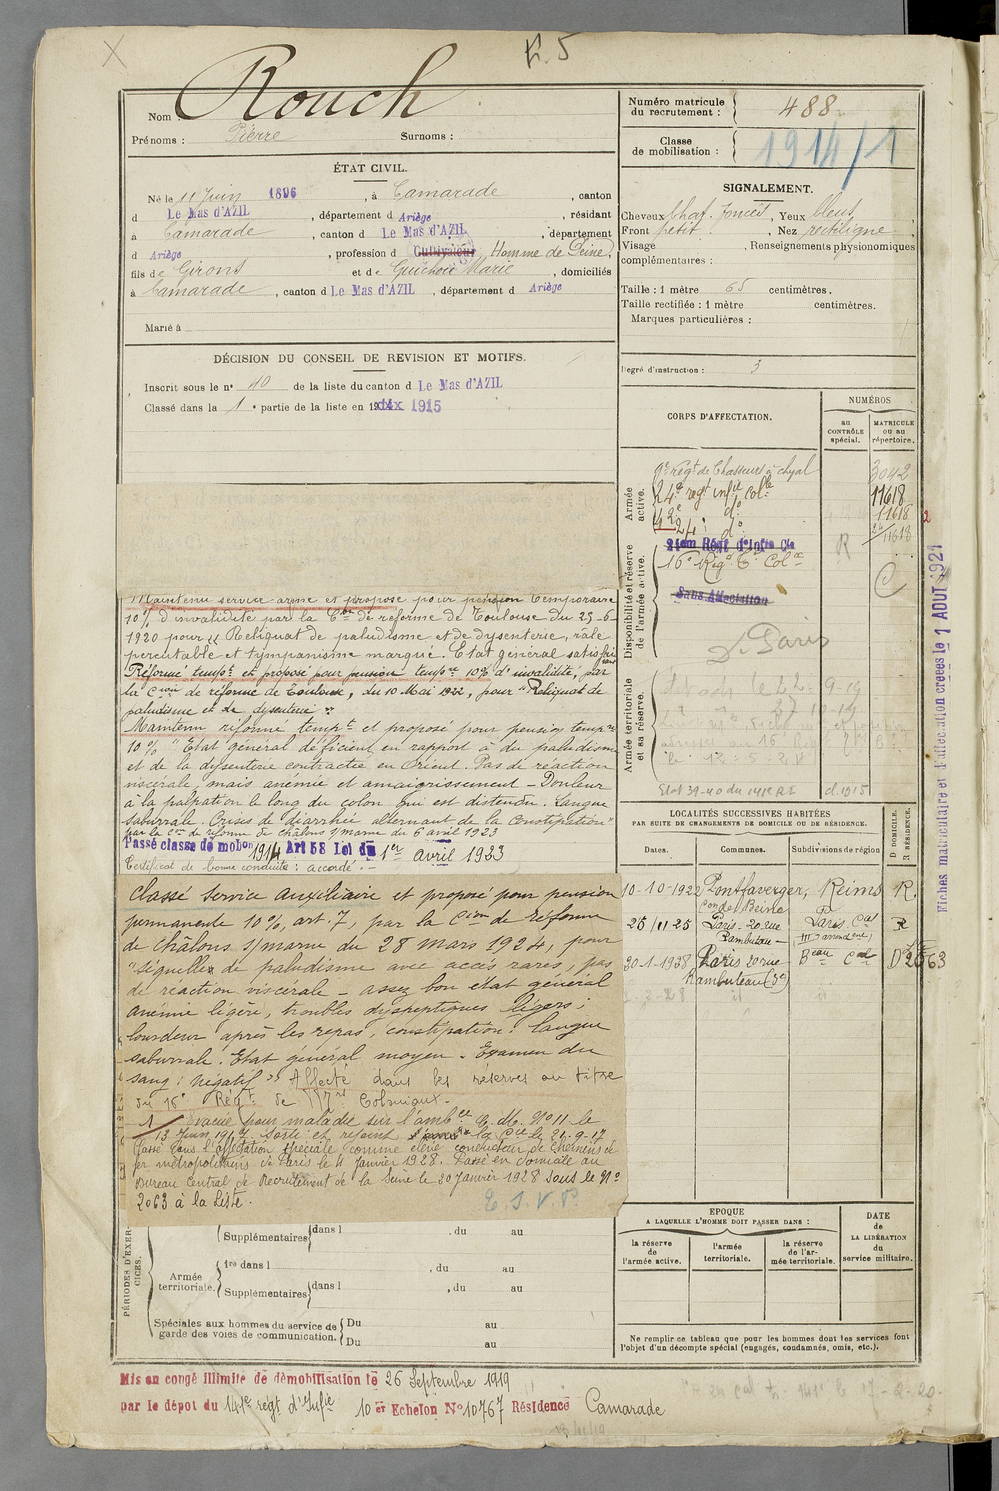 K. 5
Nom Rouch
Prénoms : Pierre Surnoms :
ÉTAT CIVIL.
Né le 11 Juin 1896, à Camarade, canton
d Le Mas d'AZIL, département d Ariège, résidant
à Camarade, canton d Le Mas d'AZIL, département
d Ariège, profession d Cultivateur Homme de Peine,
fils de Girons et de Marie, domiciliés
à Camarade, canton d Le Mas d'AZIL, département d Ariège
Marié à
DÉCISION DU CONSEIL DE REVISION ET MOTIFS.
Inscrit sous le n° 40 de la liste du canton d Le Mas d'AZIL
Classé dans la 1e partie de la liste en 1915
Maintenu service armé et proposé pour pension temporaire
10% d'invalidité par la Con de réforme de Toulouse du 23-6
1920 pour "Reliquat de paludisme et de dysenterie, rate
percutable et tympanisme marqué. Etat général satisfaisant
Réformé tempt et proposé pour pension tempre 10% d'invalidité, par
la Cion de réforme de Toulouse, du 10 Mai 1922, pour "Reliquat de
paludisme et de dysenterie"
Maintenu réformé tempt et proposé pour pension tempre
10% "Etat général déficient en rapport à du paludisme
et de la dysenterie contractée en Orient. Pas de réaction
viscérale, mais anémie et amaigrissement - Douleur
à la palpation le long du colon qui est distendu. Langue
saburrale. Crises de diarrhée alternant de la constipation"
par la Con de réforme de Châlons s/marne du 6 avril 1923
Passé classe de mobon 1914 Art 58 Loi du 1er avril 1923
Certificat de bonne conduite : accordé.
Classé Service auxiliaire et proposé pour pension
permanente 10%, art. 7, par la Cion de réforme
de Châlons s/marne du 28 mars 1924, pour
"séquelles de paludisme avec accès rares, pas
de réaction viscérale - assez bon état général
anémie légère, troubles dyspeptiques légers ;
lourdeur après les repas, constipation. langue
saburrale. Etat général moyen - Examen du
sang : négatif" Affecté dans les réserves au titre
du 16e Régt de Coloniaux.
1/ Evacué pour maladie sur l'ambce C. M. N° 11 le
13 Juin 1917. Sorti et rejoint la Cie le 21-9-17
Passé dans l'affectation spéciale comme élève conducteur de Chemins de
fer métropolitains de Paris le 4 Janvier 1928. Passé en domicile au
Bureau Central de Recrutement de la Seine le 30 Janvier 1928 sous le N°
2063 à la Liste.
T. S. V. P.
PÉRIODES D'EXERCICES.
Supplémentaires dans l , du au
Armée territoriale.
1re dans l , du au
Supplémentaires dans l , du au
Spéciales aux hommes du service de garde des voies de communication.
Du au
Du au
Mis en congé illimité de démobilisation le 26 Septembre 1919
par le dépôt du 141e régt d'Infie 10er Echelon N° 10767 Résidence Camarade
Numéro matricule du recrutement : 488
Classe de mobilisation : 1914/1
SIGNALEMENT.
Cheveux chat. foncés, Yeux bleus,
Front petit, Nez rectiligne,
Visage , Renseignements physionomiques
complémentaires :
Taille : 1 mètre 65 centimètres.
Taille rectifiée : 1 mètre centimètres.
Marques particulières :
Degré d'instruction : 3
CORPS D'AFFECTATION.
NUMÉROS
au CONTRÔLE spécial.
MATRICULE ou au répertoire.
Armée active.
9e régt de Chasseurs à cheval 3042
24e regt infie colle 11618
42e do 11618 2
24e do 11618
Disponibilité et réserve de l'armée active.
21em Régt d'Infie Cle R
16e Régt Colx
Sans Affectation C
D. Paris
Armée territoriale et sa réserve.
Etat 39-40 du d. 1915
Fiches matriculaire et d'affectation créées le 1 AOUT 1921
LOCALITÉS SUCCESSIVES HABITÉES
PAR SUITE DE CHANGEMENTS DE DOMICILE OU DE RÉSIDENCE.
Dates. Communes. Subdivisions de région D DOMICILE. R RÉSIDENCE.
10-10-1922 Pontfaverger, Reims R.
Con de Beine
25/11/25 Paris - 20 rue Rambuteau - Paris Cal (IIIe arrondent) R
30-1-1928 Paris 20 rue Rambuteau (3e) Beau Cal D 2063
EPOQUE
A LAQUELLE L'HOMME DOIT PASSER DANS :
la réserve de l'armée active.
l'armée territoriale.
la réserve de l'armée territoriale.
DATE de LA LIBÉRATION du service militaire.
Ne remplir ce tableau que pour les hommes dont les services font
l'objet d'un décompte spécial (engagés, condamnés, omis, etc.).